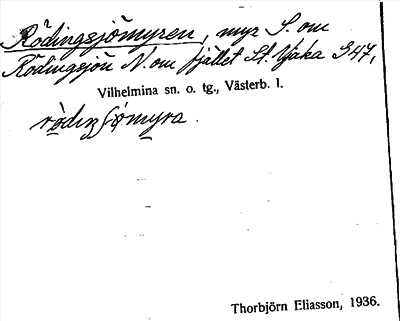 Rödingsjömyren, myr S. om
Rödingsjön N. om fjället St. Njaka G47,
Vilhelmina sn. o. tg., Västerb. l.
Thorbjörn Eliasson, 1936.